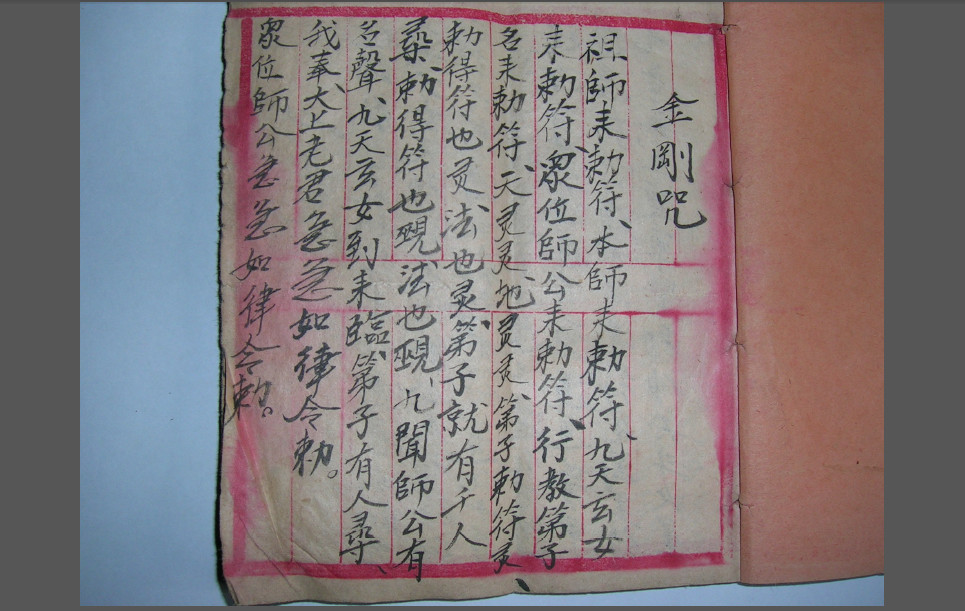 金剛咒
祖師耒勅符、本師耒勅符、九天玄女
耒勅符、眾位師公耒勅符、行教第子
名耒勅符、天灵灵、地灵灵、第子勅符灵、
勅得符也灵、法也灵、第子就有千人
尋、勅得符也現、法也現、九聞師公有
名聲、九天玄女到耒臨、第子有人尋、
我奉太上老君急急如律令勅。
眾位師公急急如律令勅。